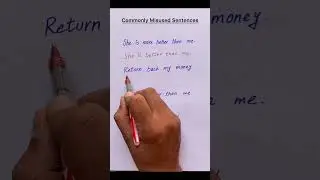 Commonly Misused Sentences
She is more better than me.
She is better than me.
Return back my money
than me
Return
money.
me.